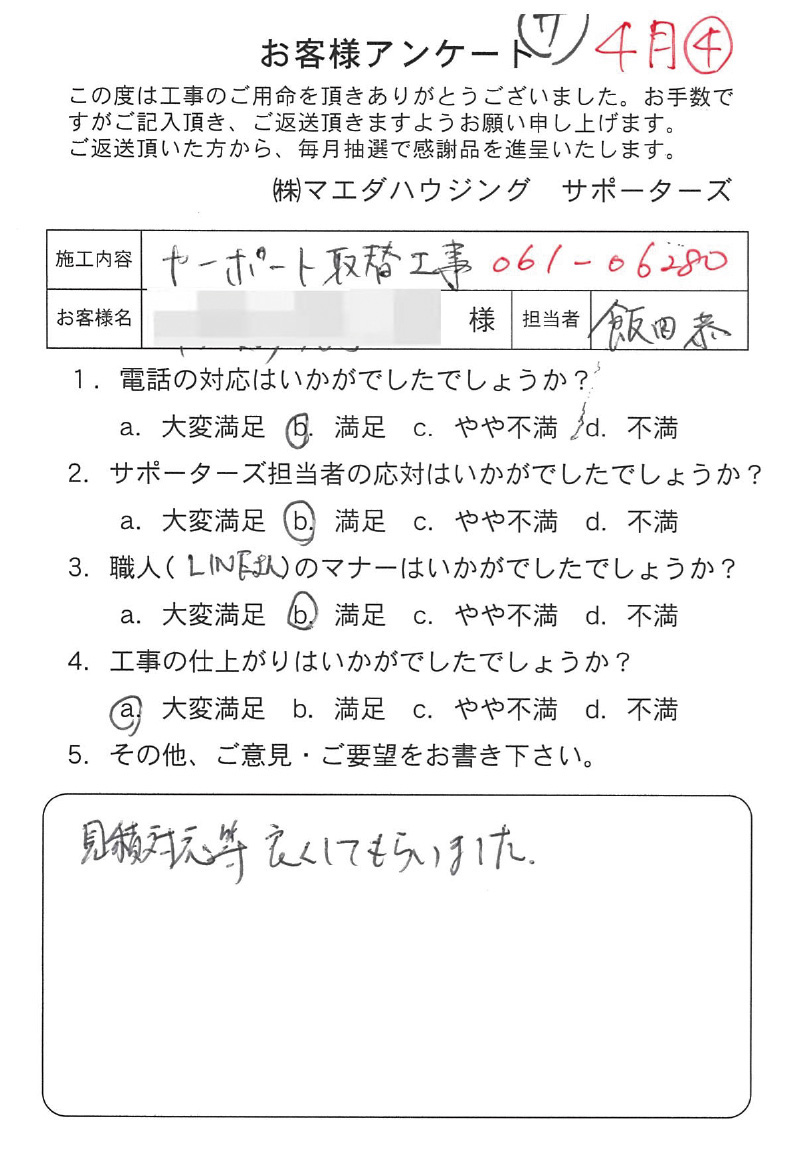 お客様アンケート サ 4月④
この度は工事のご用命を頂きありがとうございました。お手数で
すがご記入頂き、ご返送頂きますようお願い申し上げます。
ご返送頂いた方から、毎月抽選で感謝品を進呈いたします。
㈱マエダハウジング サポーターズ
施工内容 カーポート取替工事 061-06280
お客様名 様 担当者 飯田恭
1. 電話の対応はいかがでしたでしょうか?
a. 大変満足 b. 満足 c. やや不満 d. 不満
2. サポーターズ担当者の応対はいかがでしたでしょうか?
a. 大変満足 b. 満足 c. やや不満 d. 不満
3. 職人(LINEさん)のマナーはいかがでしたでしょうか?
a. 大変満足 b. 満足 c. やや不満 d. 不満
4. 工事の仕上がりはいかがでしたでしょうか?
a. 大変満足 b. 満足 c. やや不満 d. 不満
5. その他、ご意見・ご要望をお書き下さい。
見積対応等良くしてもらいました.